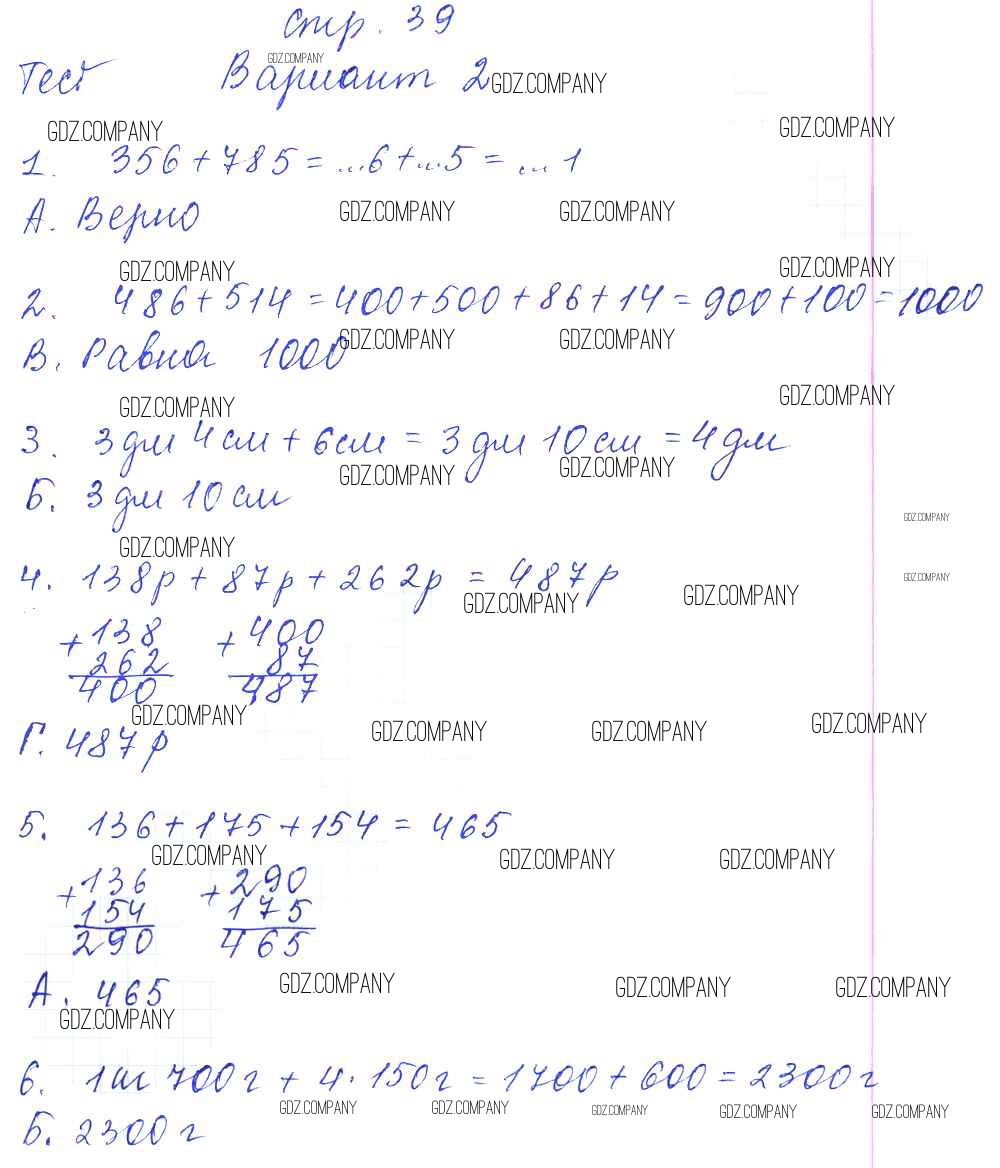 Стр. 39
GDZ.COMPANY
Тест Вариант 2
GDZ.COMPANY
GDZ.COMPANY GDZ.COMPANY
1. 356 + 785 = ...6 + ...5 = ...1
А. Верно
GDZ.COMPANY GDZ.COMPANY
GDZ.COMPANY GDZ.COMPANY
2. 486 + 514 = 400 + 500 + 86 + 14 = 900 + 100 = 1000
В. Равна 1000
GDZ.COMPANY GDZ.COMPANY
GDZ.COMPANY GDZ.COMPANY
3. 3 дм 4 см + 6 см = 3 дм 10 см = 4 дм
GDZ.COMPANY GDZ.COMPANY
Б. 3 дм 10 см
GDZ.COMPANY
GDZ.COMPANY
4. 138 р + 87 р + 262 р = 487 р
GDZ.COMPANY
GDZ.COMPANY GDZ.COMPANY
+ 138 + 400
262 87
400 487
GDZ.COMPANY GDZ.COMPANY GDZ.COMPANY GDZ.COMPANY
Г. 487 р
5. 136 + 175 + 154 = 465
GDZ.COMPANY GDZ.COMPANY GDZ.COMPANY
+ 136 + 290
154 175
290 465
А. 465
GDZ.COMPANY GDZ.COMPANY GDZ.COMPANY
GDZ.COMPANY
6. 1 кг 700 г + 4 · 150 г = 1700 + 600 = 2300 г
GDZ.COMPANY GDZ.COMPANY GDZ.COMPANY GDZ.COMPANY GDZ.COMPANY
Б. 2300 г